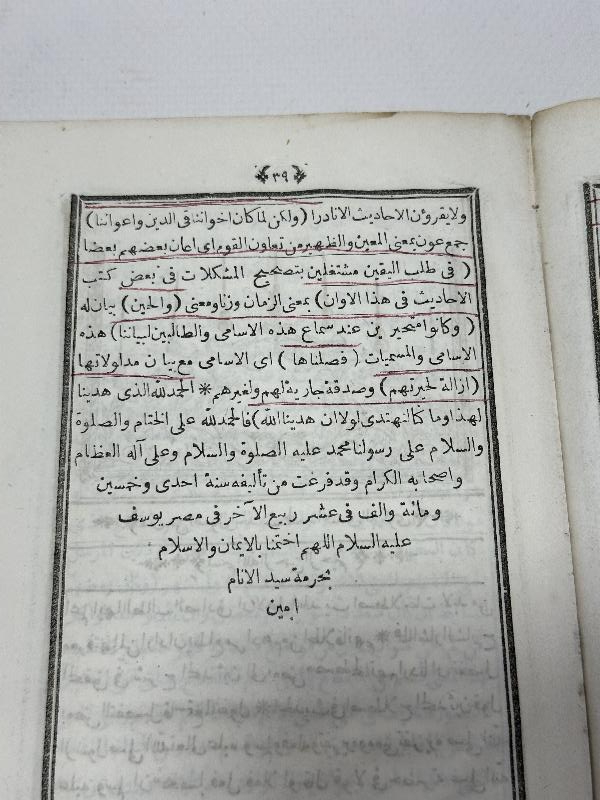 ٣٩
ولا يقرؤن الاحاديث الا نادرا (ولكن لما كان اخواننا فى الدين واعواننا)
جمع عون بمعنى المعين والظهير من تعاون القوم اى اعان بعضهم بعضا
(فى طلب اليقين مشتغلين بتصحيح المشكلات فى بعض كتب
الاحاديث فى هذا الاوان) بمعنى الزمان وزنا ومعنى (والحين) بيان له
(وكانوا متحيرين عند سماع هذه الاسامى والطالبين لبياننا) هذه
الاسامى والمسميات (فصلناها) اى الاسامى مع بيان مدلولاتها
(ازالة لحيرتهم) وصدقة جارية لهم ولغيرهم * الحمد لله الذى هدينا
لهذا وما كنا لنهتدى لولا ان هدينا الله) فالحمد لله على الختام والصلوة
والسلام على رسولنا محمد عليه الصلوة والسلام وعلى آله العظام
واصحابه الكرام وقد فرغت من تأليفه سنة احدى وخمسين
ومائة والف فى عشر ربيع الآخر فى مصر يوسف
عليه السلام اللهم اختمنا بالايمان والاسلام
بحرمة سيد الانام
امين